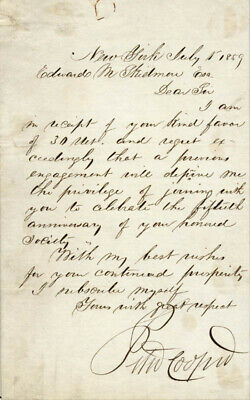 New York July 1 1859
Edward M Skidmore Esr.
Dear Sir
I am
in receipt of your kind favor
of 30 Ult. and regret ex-
ceedingly that a previous
engagement will deprive me
the privilege of joining with
you to celebrate the fiftieth
anniversary of your honored
Society
With my best wishes
for your continued prosperity
I subscribe myself
Yours with great respect
Peter Cooper